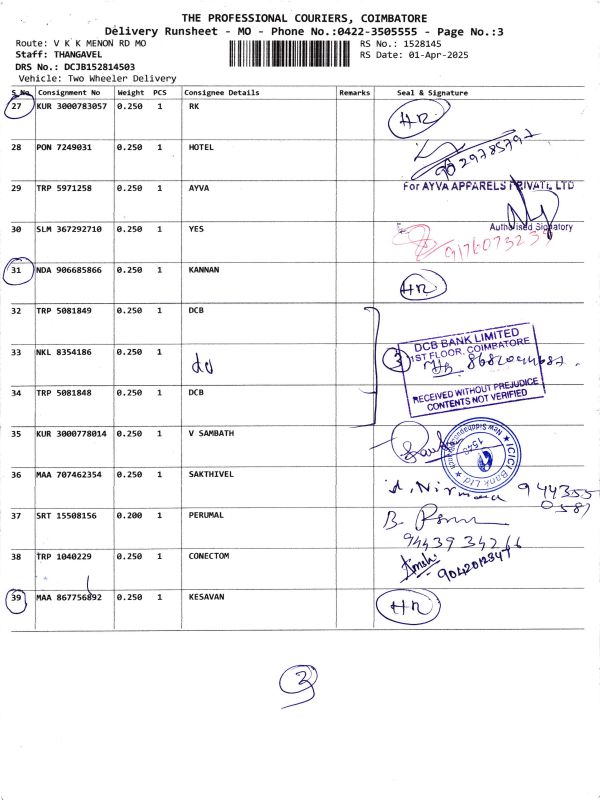 THE PROFESSIONAL COURIERS, COIMBATORE
Delivery Runsheet - MO - Phone No.:0422-3505555 - Page No.:3
Route: V K K MENON RD MO
RS No.: 1528145
Staff: THANGAVEL
RS Date: 01-Apr-2025
DRS No.: DCJB152814503
Vehicle: Two Wheeler Delivery
S No. Consignment No Weight PCS Consignee Details Remarks Seal & Signature
27 KUR 3000783057 0.250 1 RK HR
28 PON 7249031 0.250 1 HOTEL
29 TRP 5971258 0.250 1 AYVA For AYVA APPARELS PRIVATE LTD
30 SLM 367292710 0.250 1 YES Authorised Signatory
31 NDA 906685866 0.250 1 KANNAN HR
32 TRP 5081849 0.250 1 DCB
DCB BANK LIMITED
33 NKL 8354186 0.250 1 do 3 1ST FLOOR, COIMBATORE
34 TRP 5081848 0.250 1 DCB RECEIVED WITHOUT PREJUDICE
CONTENTS NOT VERIFIED
35 KUR 3000778014 0.250 1 V SAMBATH ICICI Bank Ltd
36 MAA 707462354 0.250 1 SAKTHIVEL 944355
0587
37 SRT 15508156 0.200 1 PERUMAL B.
94439 34266
38 TRP 1040229 0.250 1 CONECTOM 9042012347
39 MAA 867756892 0.250 1 KESAVAN HR
3